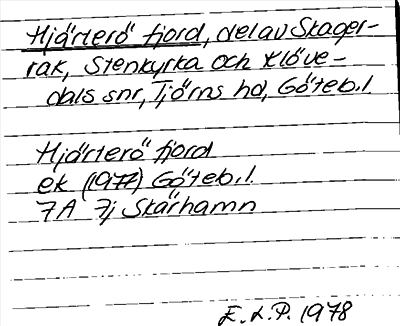 Hjärterö fjord, del av Skager-
rak, Stenkyrka och Klöve-
dals snr, Tjörns hd, Göteb.l.
Hjärterö fjord
ek (1977) Göteb.l.
7A 7j Skärhamn
E.L.P. 1978